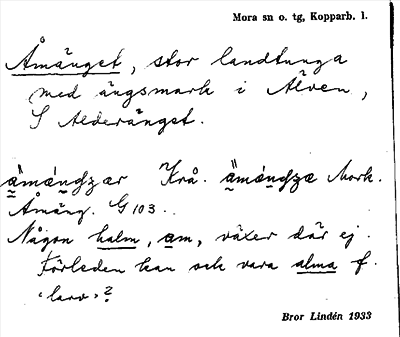 Mora sn o. tg, Kopparb. l.
Åmänget, stor landtunga
med ängsmark i Älven,
S Alderänget.
Krå. Mork.
Åmäng. G 103.
Någon halm, am, växer där ej.
Förleden kan och vara alma f.
'larv'?
Bror Lindén 1933